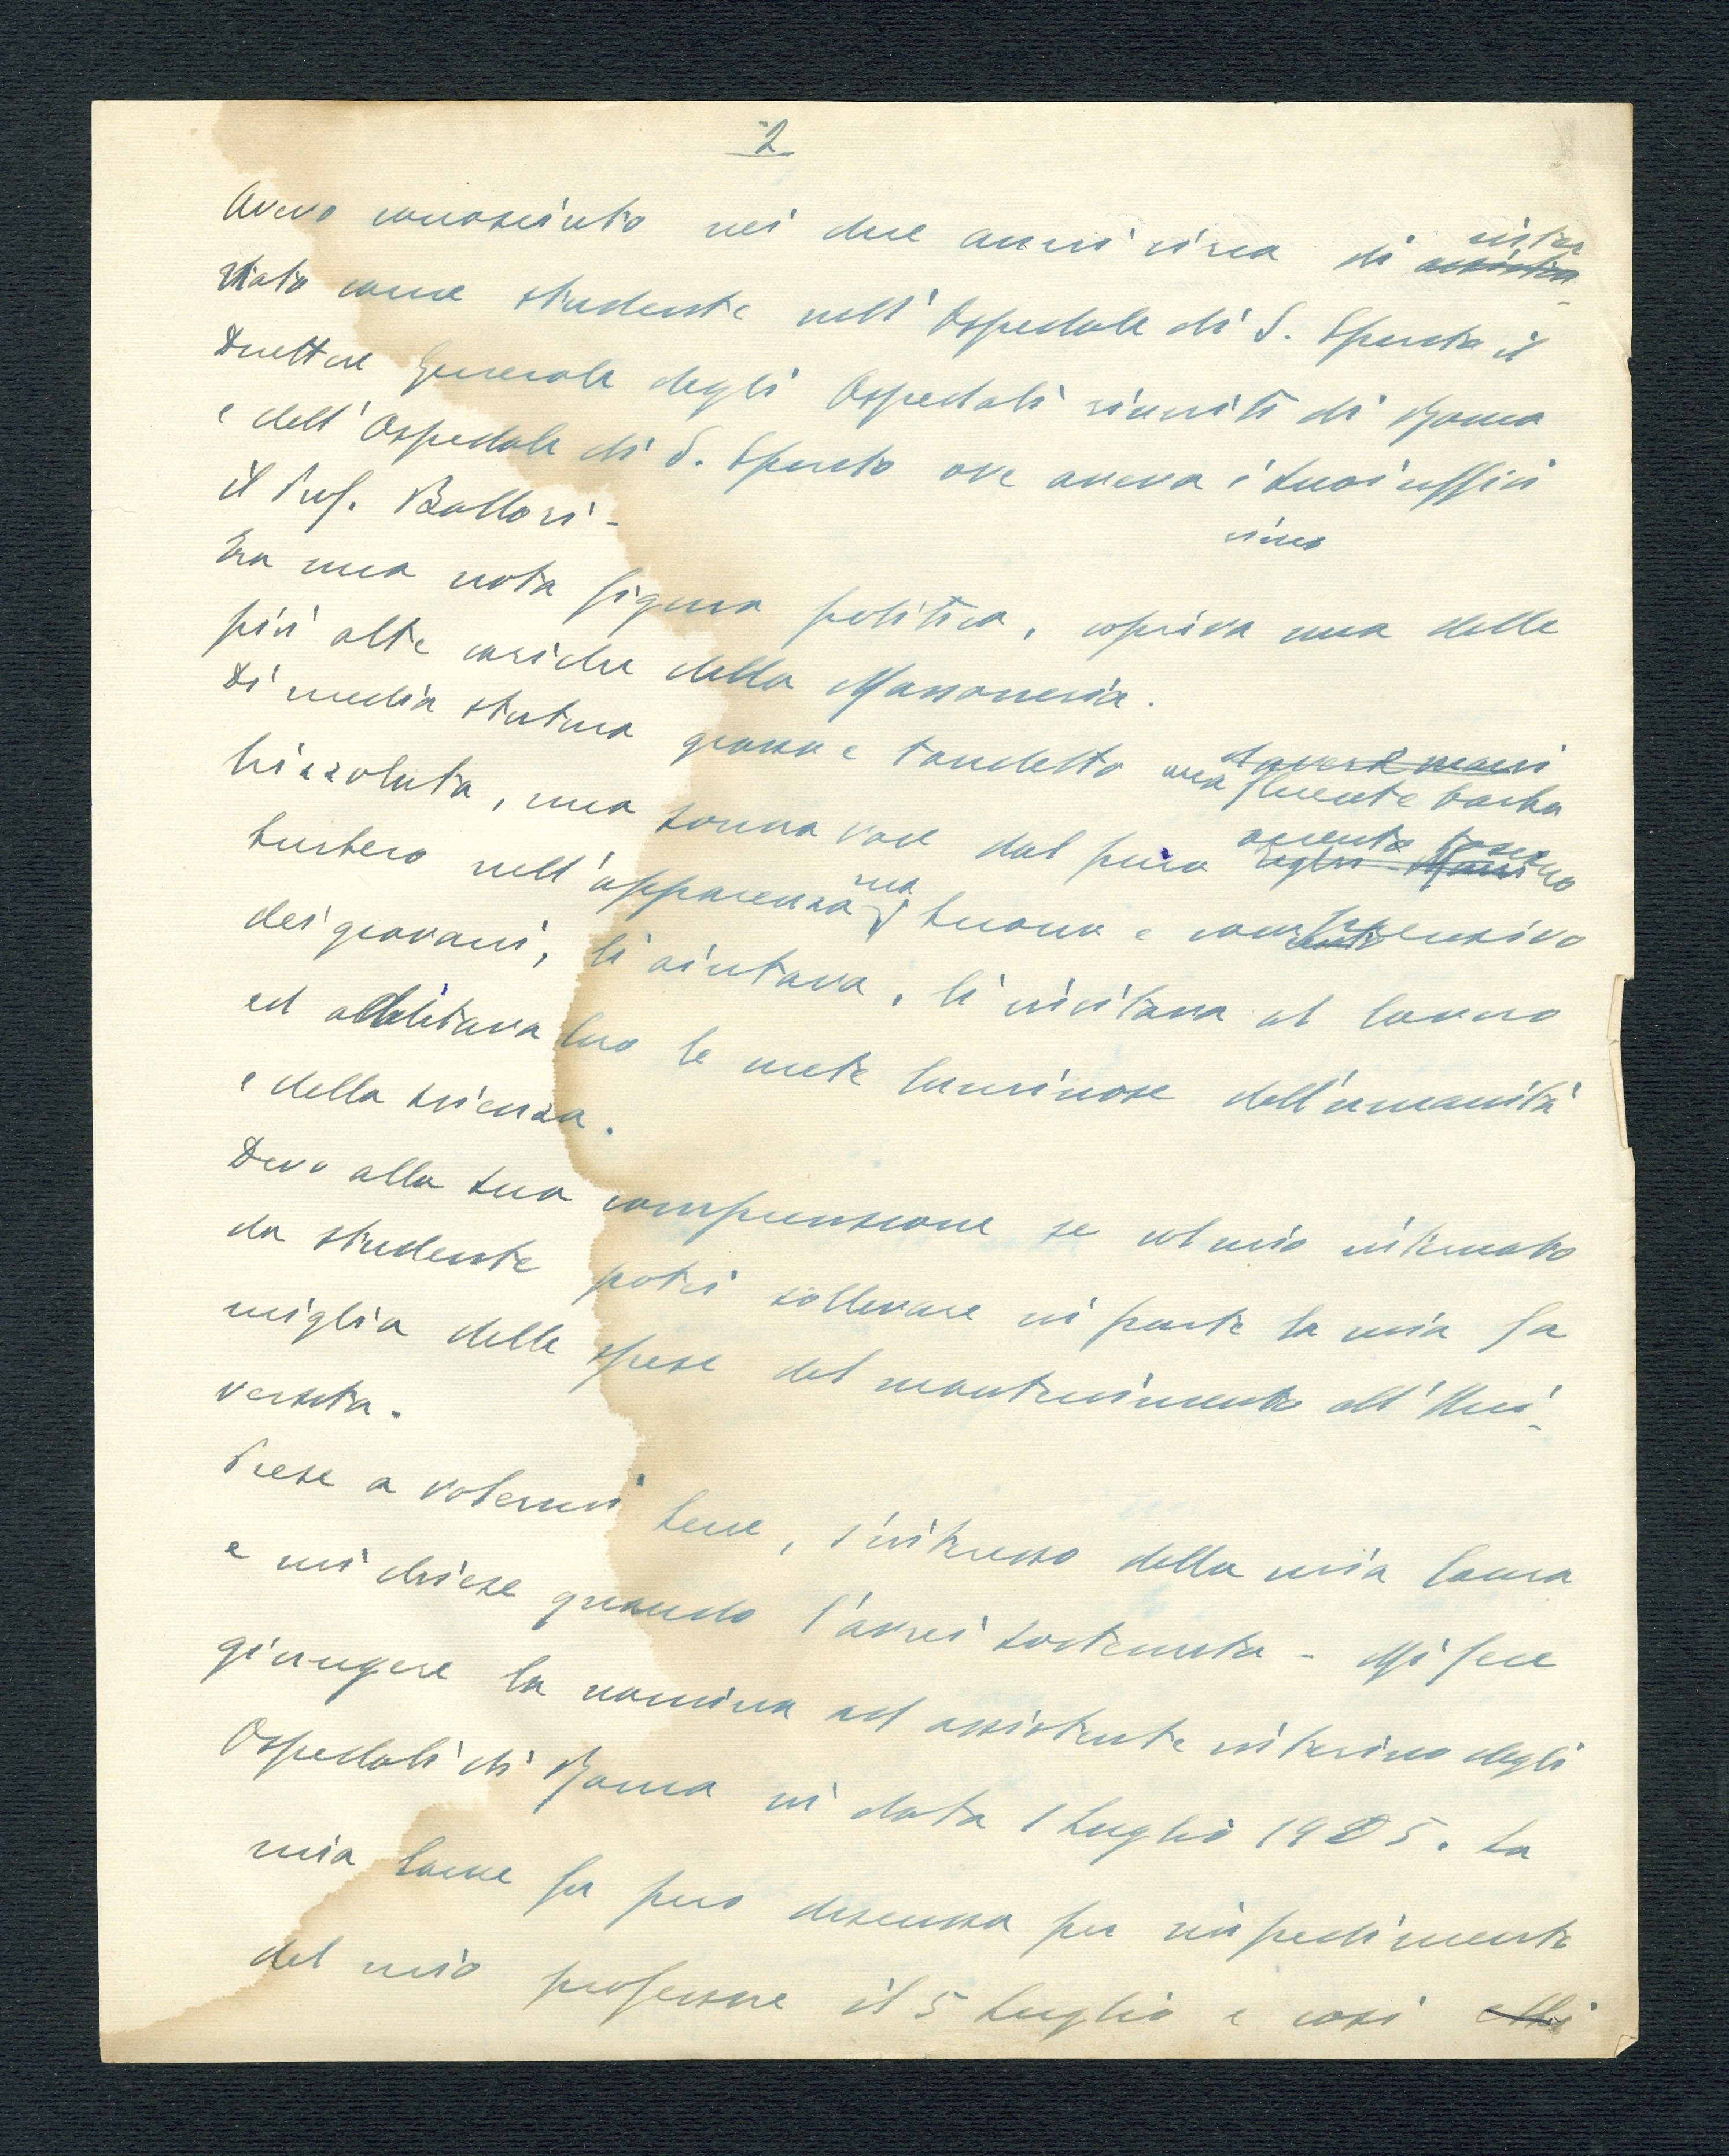 2
Avevo conosciuto nei due anni circa di inter
nato come studente nell'Ospedale di S. Spirito il
Direttore Generale degli Ospedali riuniti di Roma
e dell'Ospedale di S. Spirito ove aveva i suoi uffici
il Prof. Ballori -
Era una nota figura politica, copriva una delle
più alte cariche della Massoneria.
Di media statura grasso e tondetto una fluente barba
brizzolata, una sonora voce dal puro accento toscano
burbero nell'apparenza ma buono e comprensivo
dei giovani, li aiutava, li incitava al lavoro
ed additava loro le mete luminose dell'umanità
e della scienza.
Devo alla sua comprensione se col mio internato
da studente potei sollevare in parte la mia fa
miglia delle spese del mantenimento all'Uni-
versita.
Prese a volermi bene, s'interesso della mia laurea
e mi chiese quando l'avrei sostenuta - Mi fece
giungere la nomina ad assistente interino degli
Ospedali di Roma in data 1 Luglio 1905. La
mia laurea fu pero discussa per impedimento
del mio professore il 5 Luglio e cosi